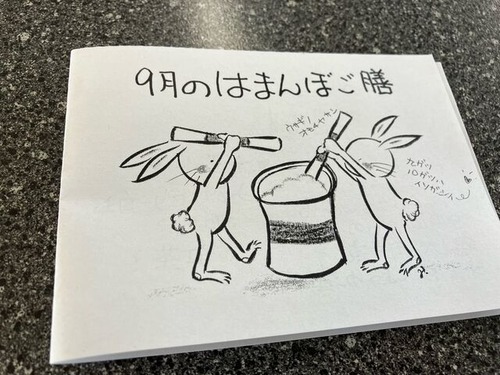 9月のはまんぼご膳
ウサギノ
オモチヤサン
10ガツハ
イソガシイ